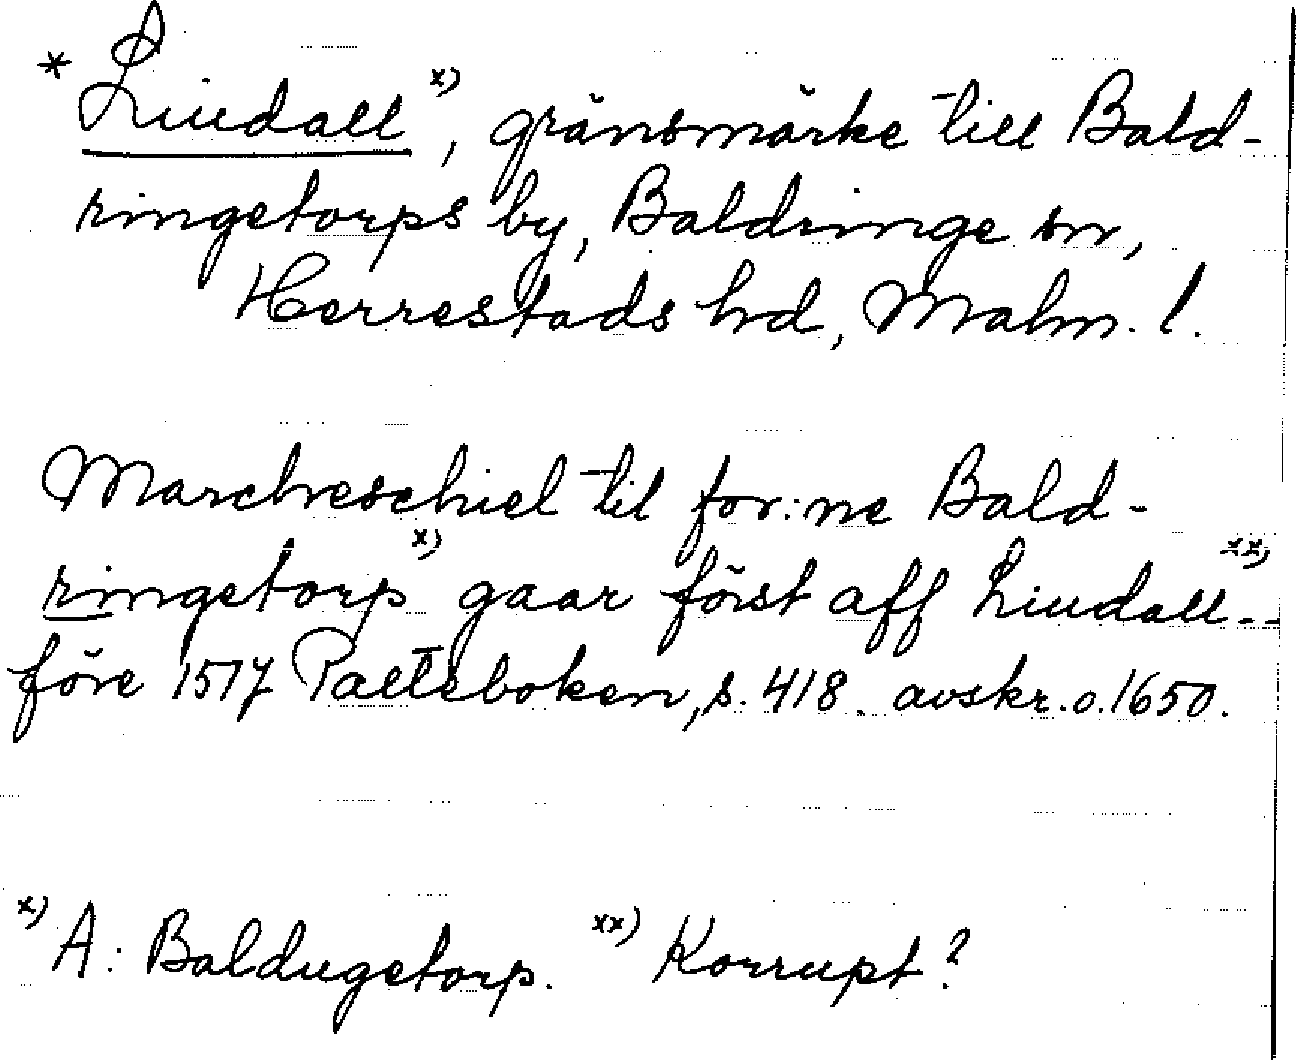 * Liudall x), gränsmärke till Bald-
ringetorps by, Baldringe sn,
Herrestads hd, Malm. l.
Marchreschiel til for:ne Bald-
ringetorp x) gaar först aff Liudall xx) --
före 1517 Palteboken, s. 418. avskr. o. 1650.
x) A: Baldugetorp. xx) Korrupt?